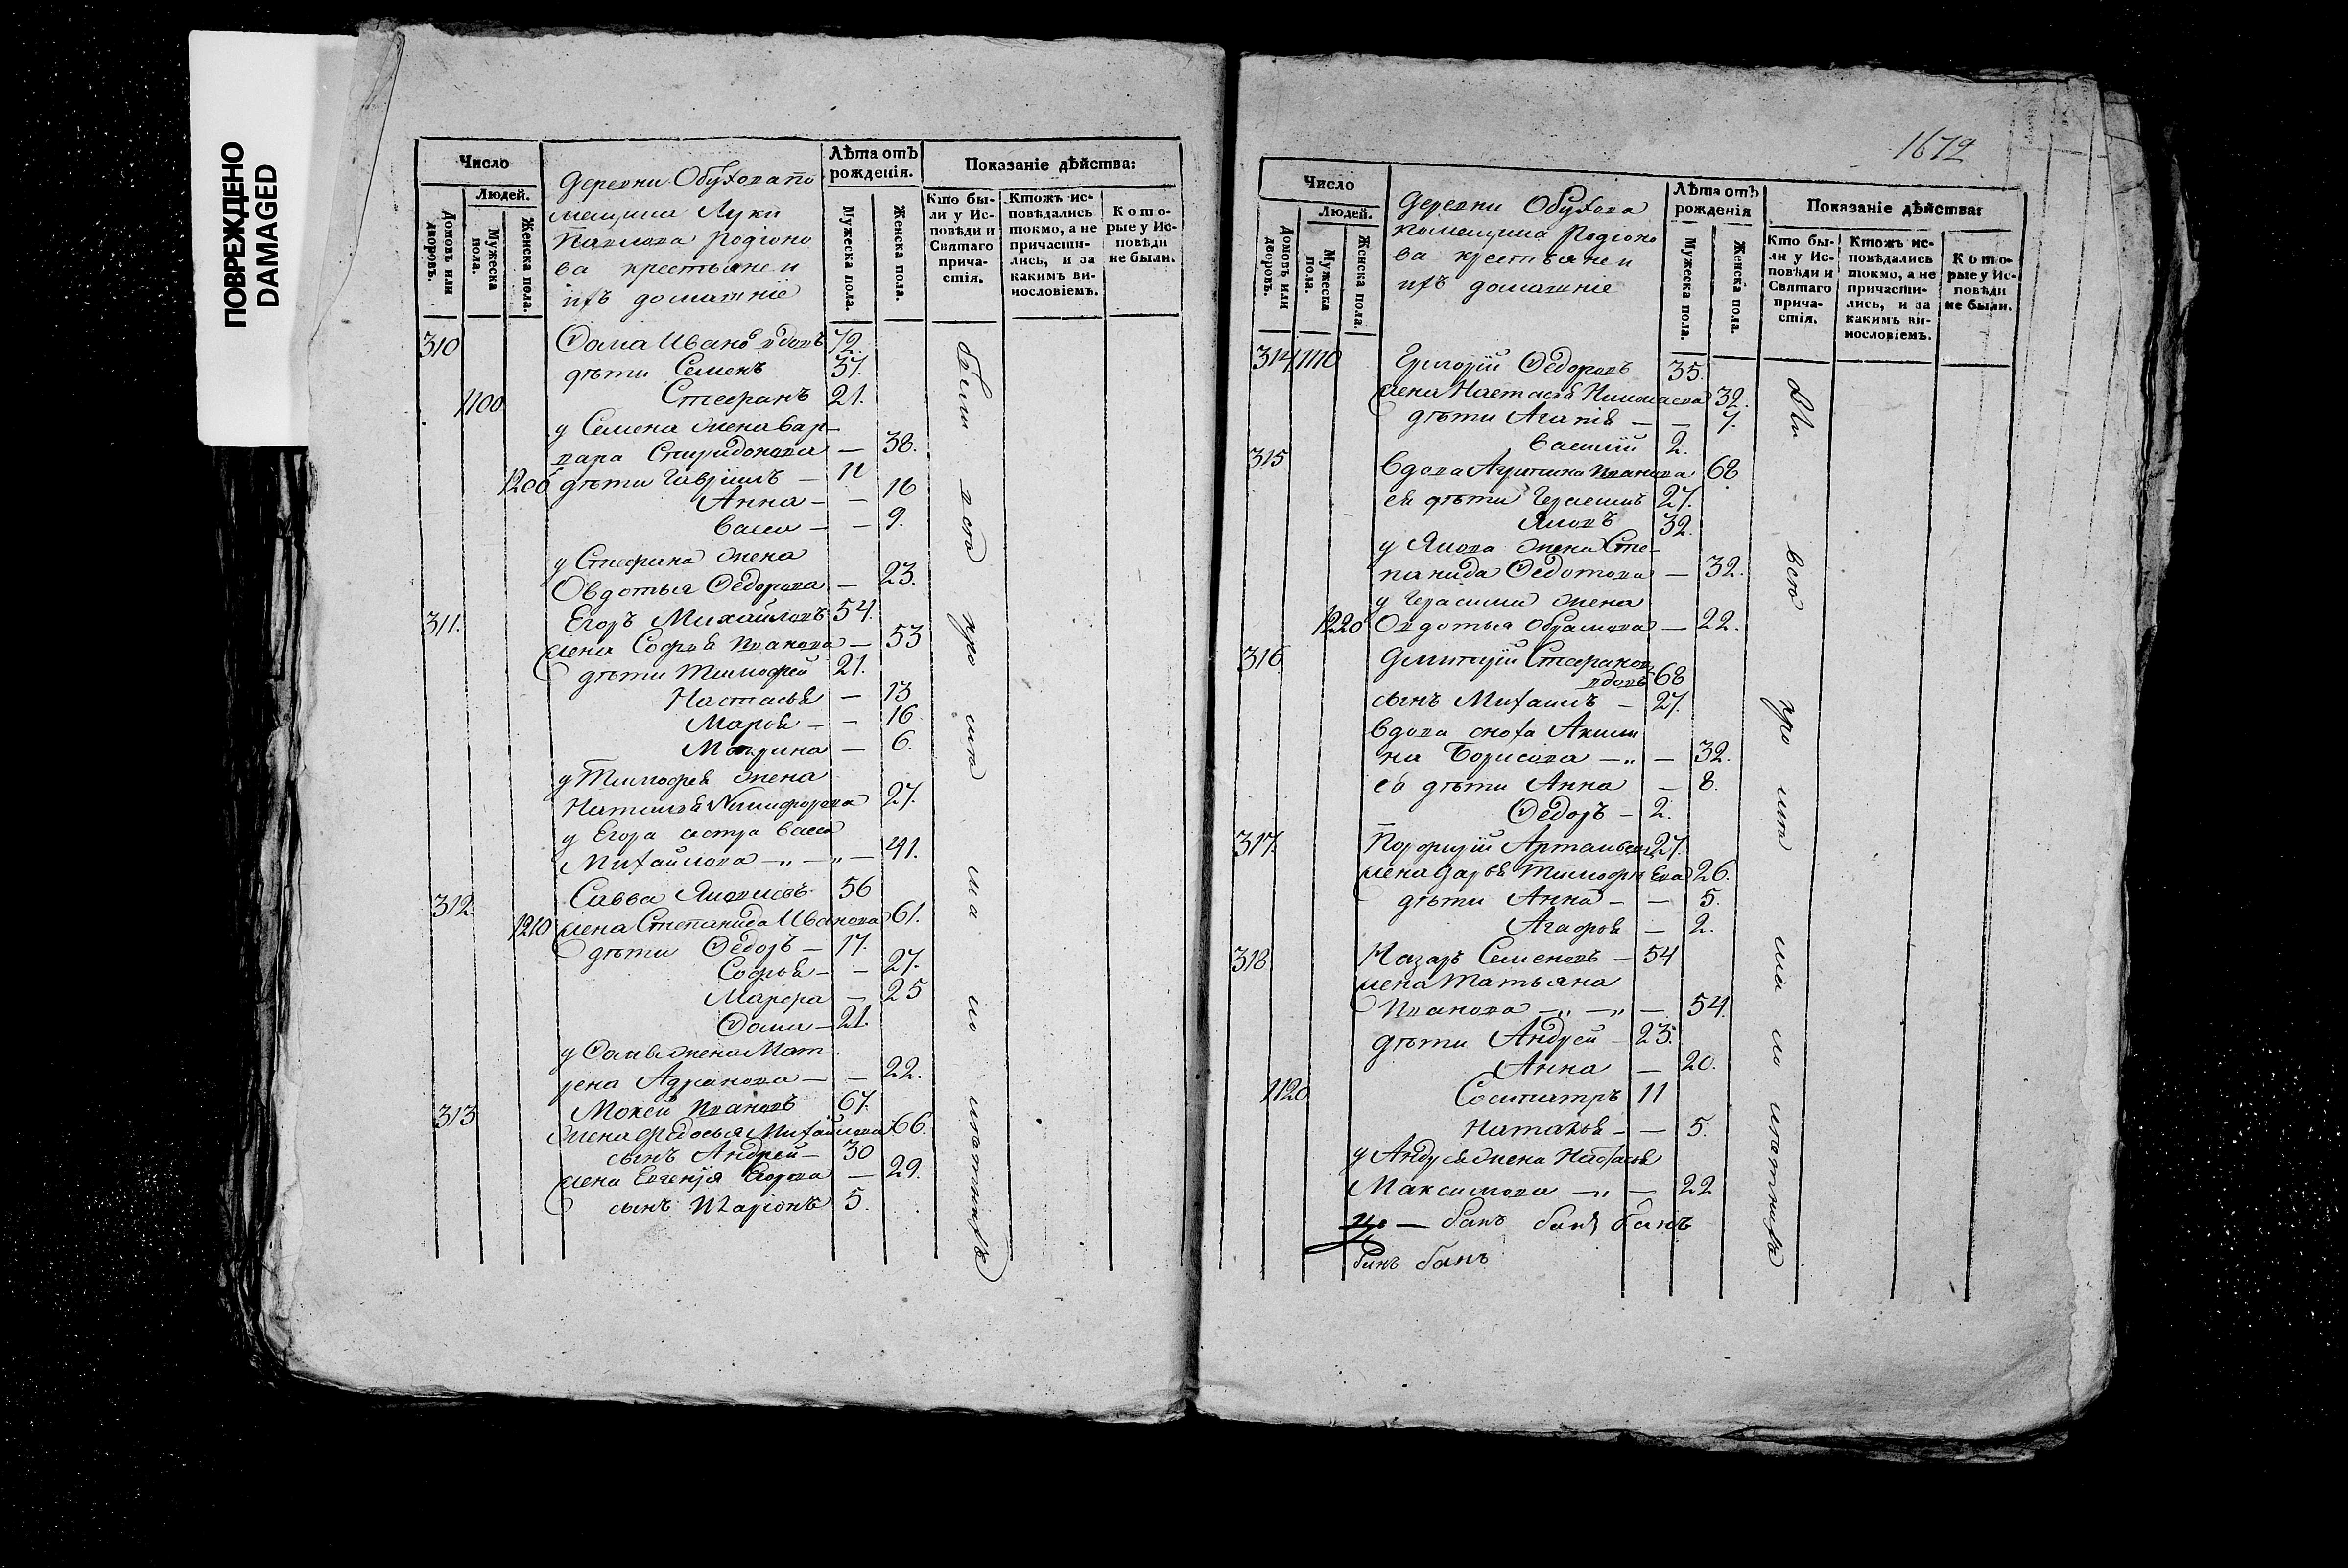 ПОВРЕЖДЕНО
DAMAGED
Число
Людей.
Домовъ или дворовъ.
Мужеска пола.
Женска пола.
Деревни Обухова по
мещика Луки
Павлова Родіоно
ва крестьяне и
ихъ домашніе
Лѣта отъ рожденія.
Мужеска пола.
Женска пола.
Показаніе дѣйства:
Кто бы-
ли у Ис-
повѣди и
Святаго
прича-
стія.
Ктожъ ис-
повѣдались
токмо, а не
причасти-
лись, и за
какимъ ви-
нословіемъ.
Кото-
рые у Ис-
повѣди
не были.
310 Ѳома Ивановъ вдовъ 72.
дѣти Семенъ 37.
1100 Стефанъ 21.
у Семена жена Вар-
вара Спиридонова — 38.
1200 дѣти Гавріилъ — 11
Анна — — 10
Васса — — 9.
у Стефана жена
Овдотья Ѳедорова — 23.
311. Егоръ Михайловъ 54.
жена Софья Иванова — 53
дѣти Тимофей 21.
Настасья — 13
Марья — — 16
Матрина — 6.
у Тимофея жена
Наталья Никифорова 27.
у Егора сестра Васса
Михайлова — „ — „ — 41.
312. Савва Яковлевъ 56
1210 жена Степанида Иванова 61.
дѣти Ѳедоръ — 17.
Софья — — 27.
Марфа — 25
Ѳома — 21.
у Ѳомы жена Мат-
рена Адріанова — — 22.
313 Мокей Ивановъ 67.
жена Ѳедосья Михайлова 66.
сынъ Андрей — 30
жена Евгенія Егорова — 29.
сынъ Иларіонъ 5.
были
1672
Число
Людей.
Домовъ или дворовъ.
Мужеска пола.
Женска пола.
Деревни Обухова
помещика Родіоно
ва крестьяне и
ихъ домашніе
Лѣта отъ рожденія
Мужеска пола.
Женска пола.
Показаніе дѣйства:
Кто бы-
ли у Ис-
повѣди и
Святаго
прича-
стія.
Ктожъ ис-
повѣдались
токмо, а не
причасти-
лись, и за
какимъ ви-
нословіемъ.
Кото-
рые у Ис-
повѣди
не были.
314 1110 Григорій Ѳедоровъ 35.
жена Настасья Николаева 32.
дѣти Агапія — — 7.
Василій 2.
315 вдова Агрипина Иванова 68
ея дѣти Герасимъ 27.
Яковъ 32.
у Якова жена Сте-
панида Ѳедотова — 32.
у Герасима жена
1220 Овдотья Обрамова — 22.
316 Дмитрій Стефановъ
вдовъ 68
сынъ Михаилъ — 27.
вдова сноха Акили
на Борисова — „ — 32.
ея дѣти Анна — 8.
Ѳедоръ — 2.
317. Порфирій Артамоновъ 27.
жена Дарья Тимофѣева 26.
дѣти Анна — — 5.
Агафья — 2.
318 Назаръ Семеновъ — 54
жена Татьяна
Иванова — „ — „ — 54.
дѣти Андрей — 23.
Анна — 20.
1120 Сосипатръ 11
Наталья — — 5.
у Андрея жена Настасья
Максимова — „ — 22
банъ банъ банъ
банъ банъ